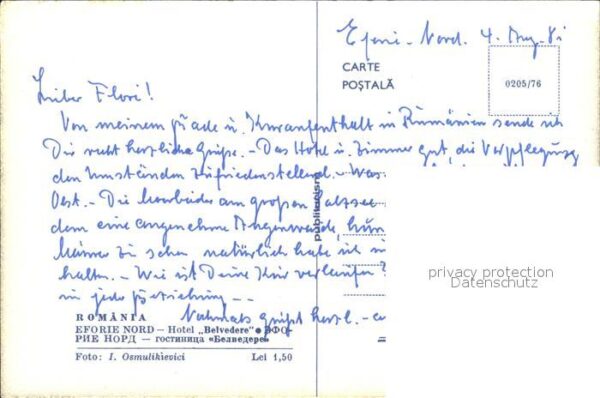 Eforie-Nord. 4. Aug. 81
CARTE
POȘTALĂ
0205/76
Lieber Flori!
Von meinem Bade u. Kuraufenthalt in Rumänien sende ich
Dir recht herzliche Grüße. - Das Hotel u. Zimmer gut, die Verpflegung
den Umständen zufriedenstellend. - Was
Ost. - Die Moorbäder am großen Salzsee
dem eine angenehme Augenweide,
Männer zu sehen, natürlich habe ich
halten. - Wie ist Deine Kur verlaufen?
in jeder Beziehung --
Nochmals grüßt herzl. -
publiturism
ROMÂNIA
EFORIE NORD — Hotel „Belvedere" ● ЭФО-
РИЕ НОРД — гостиница «Белведере»
Foto: I. Osmulikievici Lei 1,50
privacy protection
Datenschutz